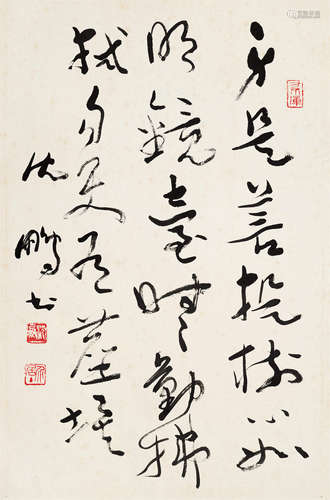 身是菩提樹心如
明鏡臺時時勤拂
拭勿使有塵埃
沈鵬書